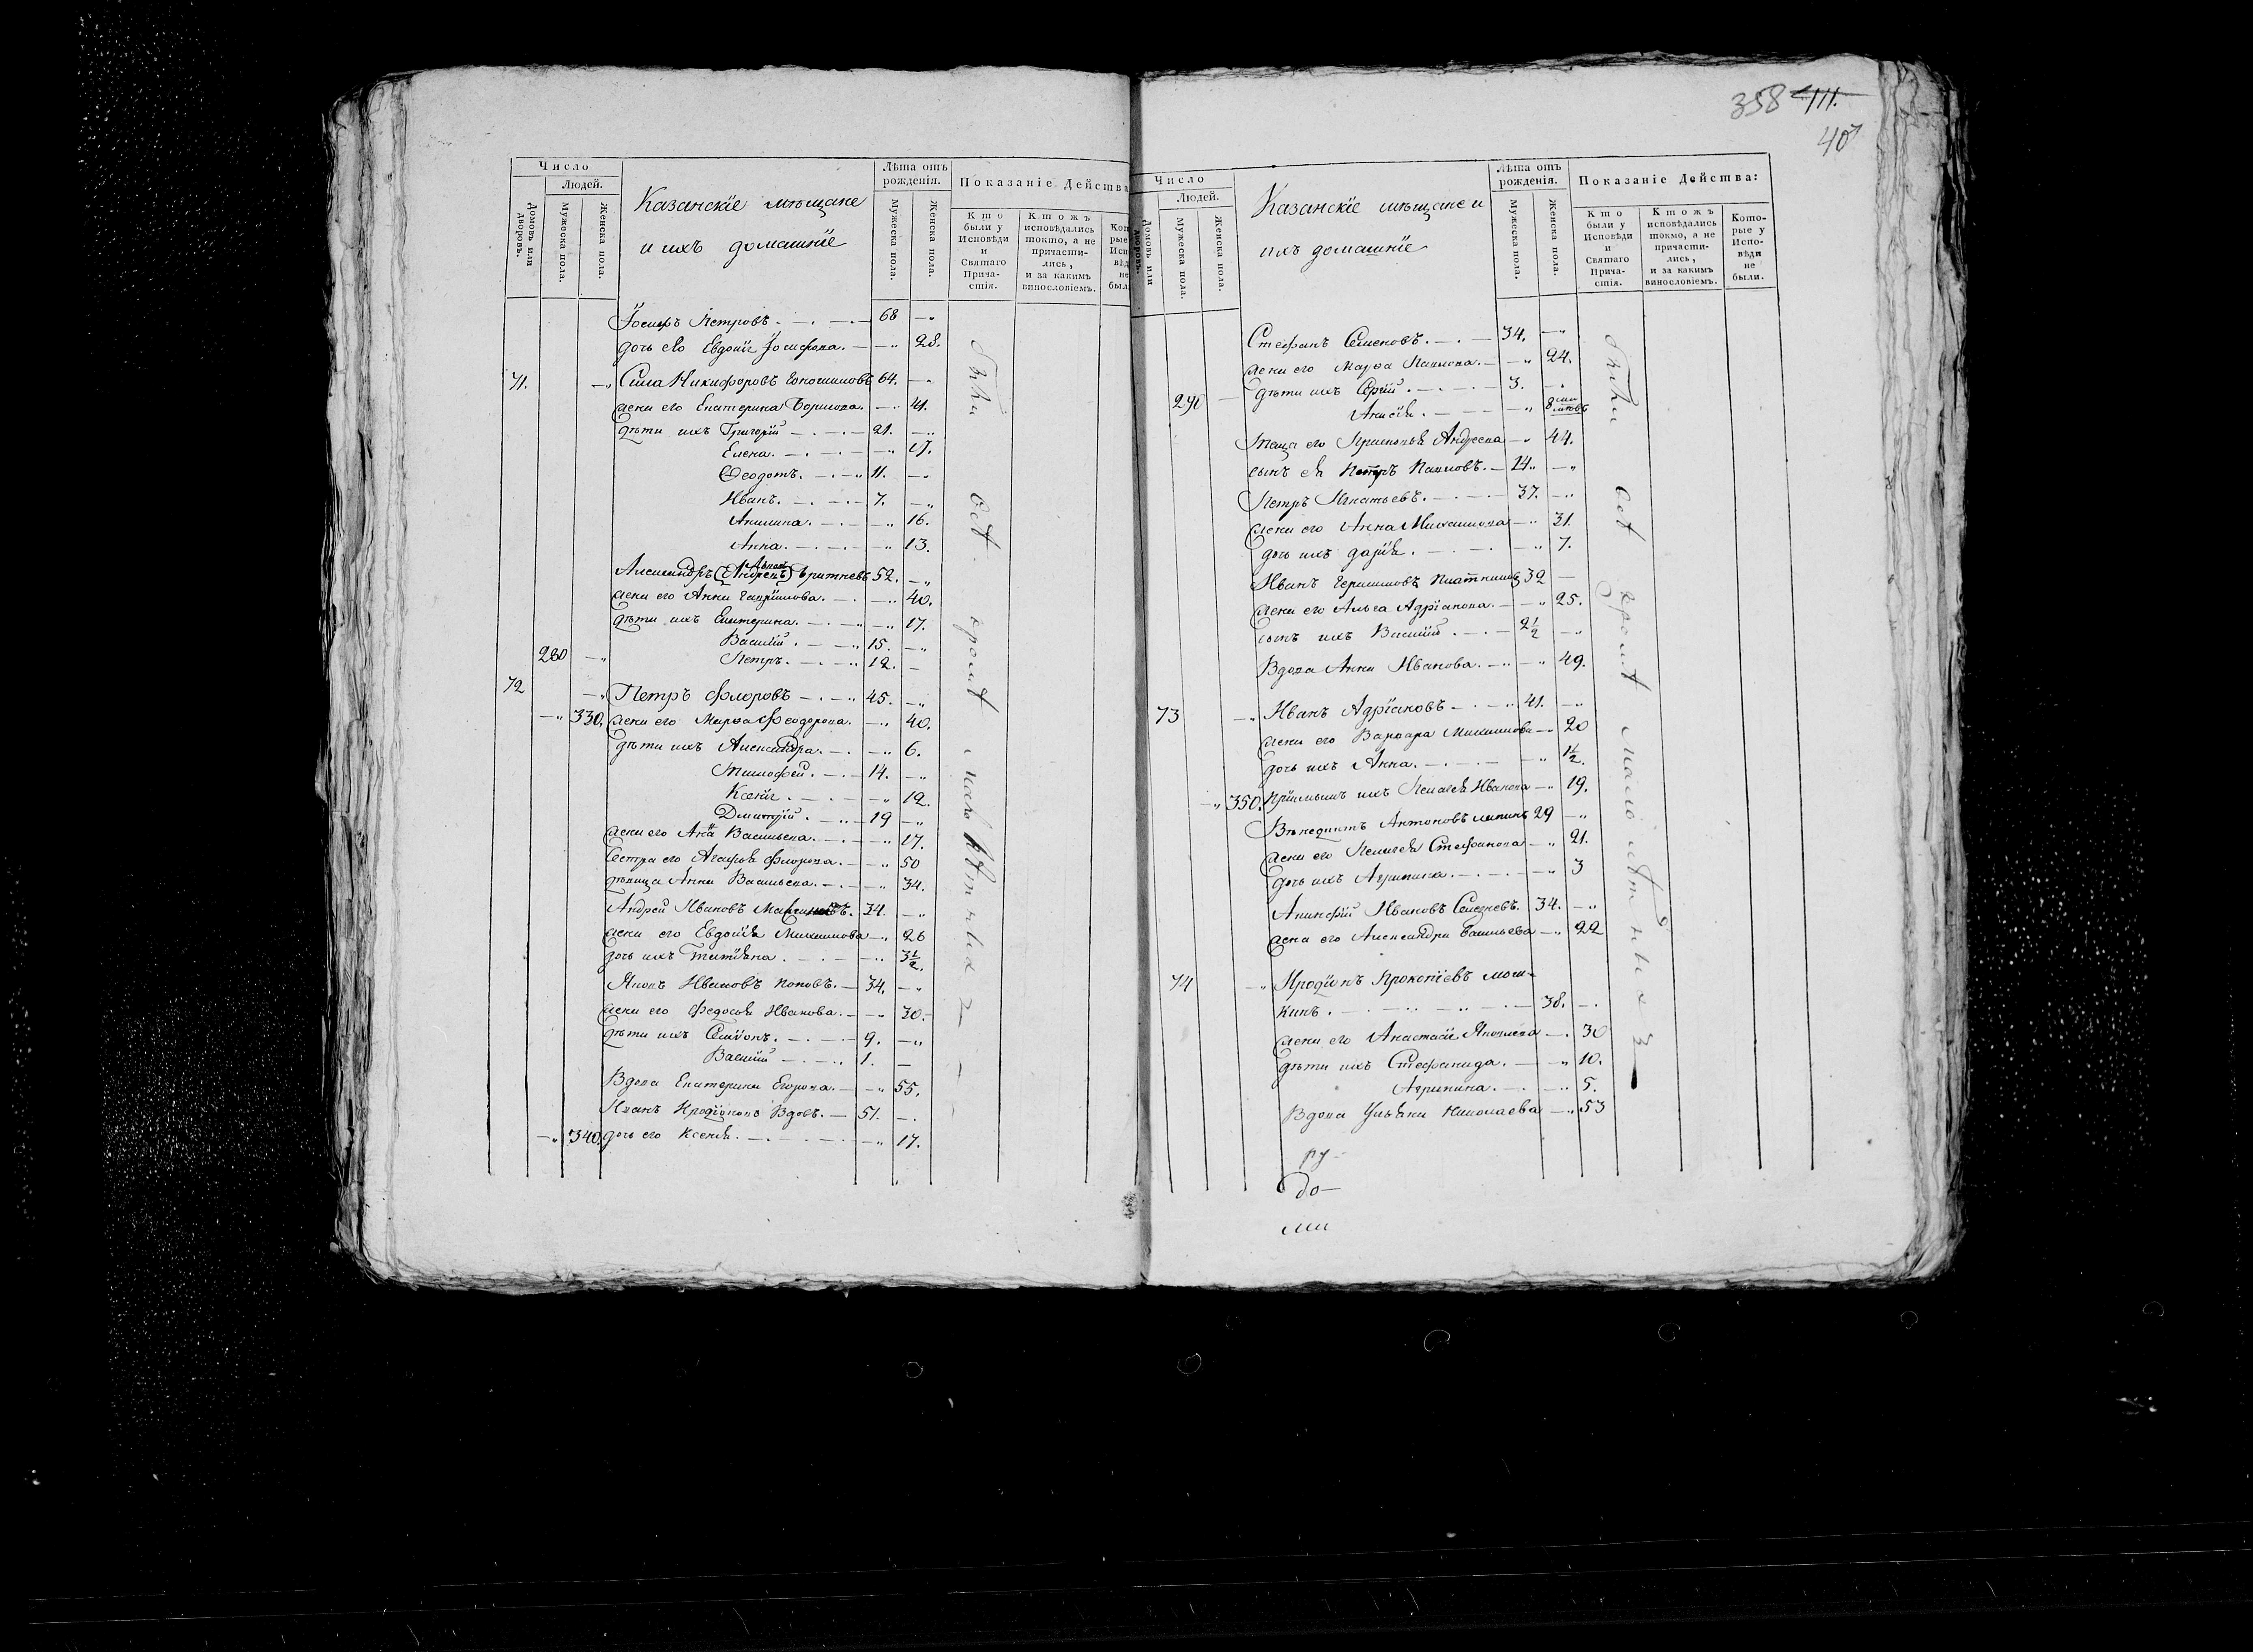 358 111.
40
Число
Людей.
Домовъ или дворовъ.
Мужеска пола.
Женска пола.
Казанскіе мѣщане
и ихъ домашніе
Лѣта отъ рожденія.
Мужеска пола.
Женска пола.
Показаніе Действа
Кто были у Исповѣди и Святаго Прича-стія.
Ктожъ исповѣдались токмо, а не причасти-лись, и за какимъ винословіемъ.
Іосифъ Петровъ. 68 —
дочь его Евдокія Іосифова. — 28.
71. Сила Никифоровъ 64. —
жена его Екатерина Борисова. — 41.
дѣти ихъ Григорій 21. —
Елена. — 17.
Ѳеодотъ. 11. —
Иванъ. 7. —
Акилина. — 16.
Анна. — 13.
Александръ (Андреевъ) 52. —
жена его Анна Гаврилова. — 40.
дѣти ихъ Екатерина. — 17.
Василій. 15. —
280 Петръ. 12. —
72 Петръ Флоровъ 45. —
330. жена его Марѳа Феодорова. — 40.
дѣти ихъ Александра. — 6.
Тимофей. 14. —
Ксенія. — 12.
Дмитрій. 19 —
жена его Анна Васильева. — 17.
Сестра его Агафья Флорова. — 50
дѣвица Анна Васильева. — 34.
Андрей Ивановъ 34. —
жена его Евдокія Михайлова — 26
дочь ихъ Татіяна. — 3½.
Яковъ Ивановъ Поповъ. 34. —
жена его Федосья Иванова. — 30.
дѣти ихъ Семіонъ. 9. —
Василій 1. —
Вдова Екатерина Егорова. — 55.
Иванъ Иродіоновъ Вдовъ. 51. —
340. дочь его Ксенія. — 17.
Были всѣ кромѣ малолѣтныхъ
Число
Людей.
Домовъ или дворовъ.
Мужеска пола.
Женска пола.
Казанскіе мѣщане и
ихъ домашніе
Лѣта отъ рожденія.
Мужеска пола.
Женска пола.
Показаніе Действа:
Кто были у Исповѣди и Святаго Прича-стія.
Ктожъ исповѣдались токмо, а не причасти-лись, и за какимъ винословіемъ.
Кото-рые у Испо-вѣди не были.
Стефанъ Семеновъ. 34. —
жена его Марѳа Павлова. — 24.
290 дѣти ихъ Сергій 3. —
Анисія. — 8
Теща его Прасковья Андреева — 44.
сынъ ея Петръ Павловъ. 14. —
Петръ Игнатьевъ. 37. —
жена его Анна Михайлова — 31.
дочь ихъ Дарія. — 7.
Иванъ Герасимовъ 32 —
жена его Ольга Адріанова. — 25.
сынъ ихъ Василій 2½ —
Вдова Анна Иванова. — 49.
73 Иванъ Адріановъ 41. —
жена его Варвара Михайлова — 20
дочь ихъ Анна. — 1½.
350. ихъ Пелагея Иванова — 19.
Венедиктъ Антоновъ 29 —
жена его Пелагея Стефанова — 21.
дочь ихъ Агрипина. — 3
Ивановъ Селезневъ. 34. —
жена его Александра Васильева — 22
74 Иродіонъ Прокопіевъ Моги-
кинъ. 38. —
жена его Анастасія Яковлева — 30
дѣти ихъ Стефанида. — 10.
Агрипина. — 5.
Вдова Ульяна Николаева — 53
Были всѣ кромѣ малолѣтныхъ
ру-
до-
ми